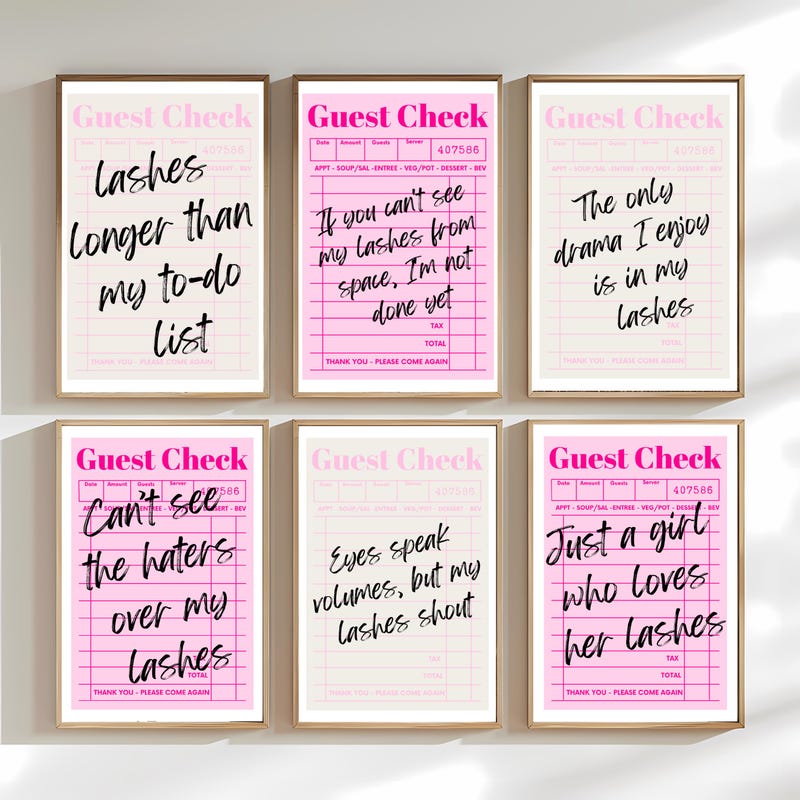 Guest Check
Date Amount Guests Server 407586
APPT - SOUP/SAL -ENTREE - VEG/POT - DESSERT - BEV
lashes
longer than
my to-do
list
THANK YOU - PLEASE COME AGAIN
Guest Check
Date Amount Guests Server 407586
APPT - SOUP/SAL -ENTREE - VEG/POT - DESSERT - BEV
If you can't see
my lashes from
space, I'm not
done yet
TAX
TOTAL
THANK YOU - PLEASE COME AGAIN
Guest Check
Date Amount Guests Server 407586
APPT - SOUP/SAL -ENTREE - VEG/POT - DESSERT - BEV
The only
drama I enjoy
is in my
lashes
TAX
TOTAL
THANK YOU - PLEASE COME AGAIN
Guest Check
Date Amount Guests Server 7586
Can't see
the haters
over my
lashes
TOTAL
THANK YOU - PLEASE COME AGAIN
Guest Check
Date Amount Guests Server 407586
APPT - SOUP/SAL -ENTREE - VEG/POT - DESSERT - BEV
Eyes speak
volumes, but my
lashes shout
TAX
TOTAL
THANK YOU - PLEASE COME AGAIN
Guest Check
Date Amount Guests Server 407586
APPT - SOUP/SAL -ENTREE - VEG/POT - DESSERT - BEV
Just a girl
who loves
her lashes
TAX
TOTAL
THANK YOU - PLEASE COME AGAIN